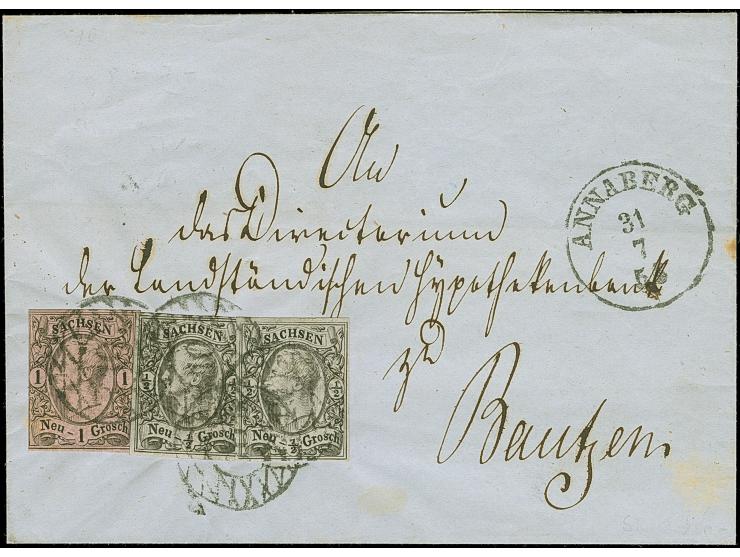 An
das Directorium
der Landständischen Hypothekenbank
zu
Bautzen
ANNABERG
31
7
SACHSEN
1 1
Neu - 1 Grosch
SACHSEN
½ ½
Neu - ½ Grosch
SACHSEN
½ ½
Neu - ½ Grosch